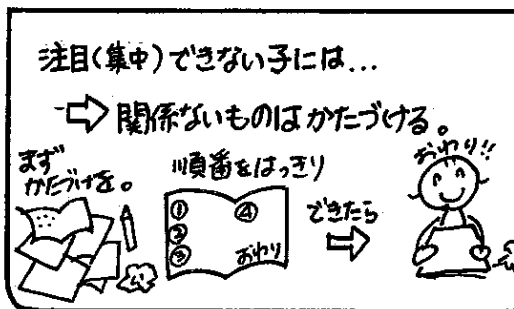 注目(集中)できない子には...
⇨ 関係ないものはかたづける。
まず
かたづけを。
順番をはっきり
① ④
②
③ おわり
できたら
⇨
おわり!!